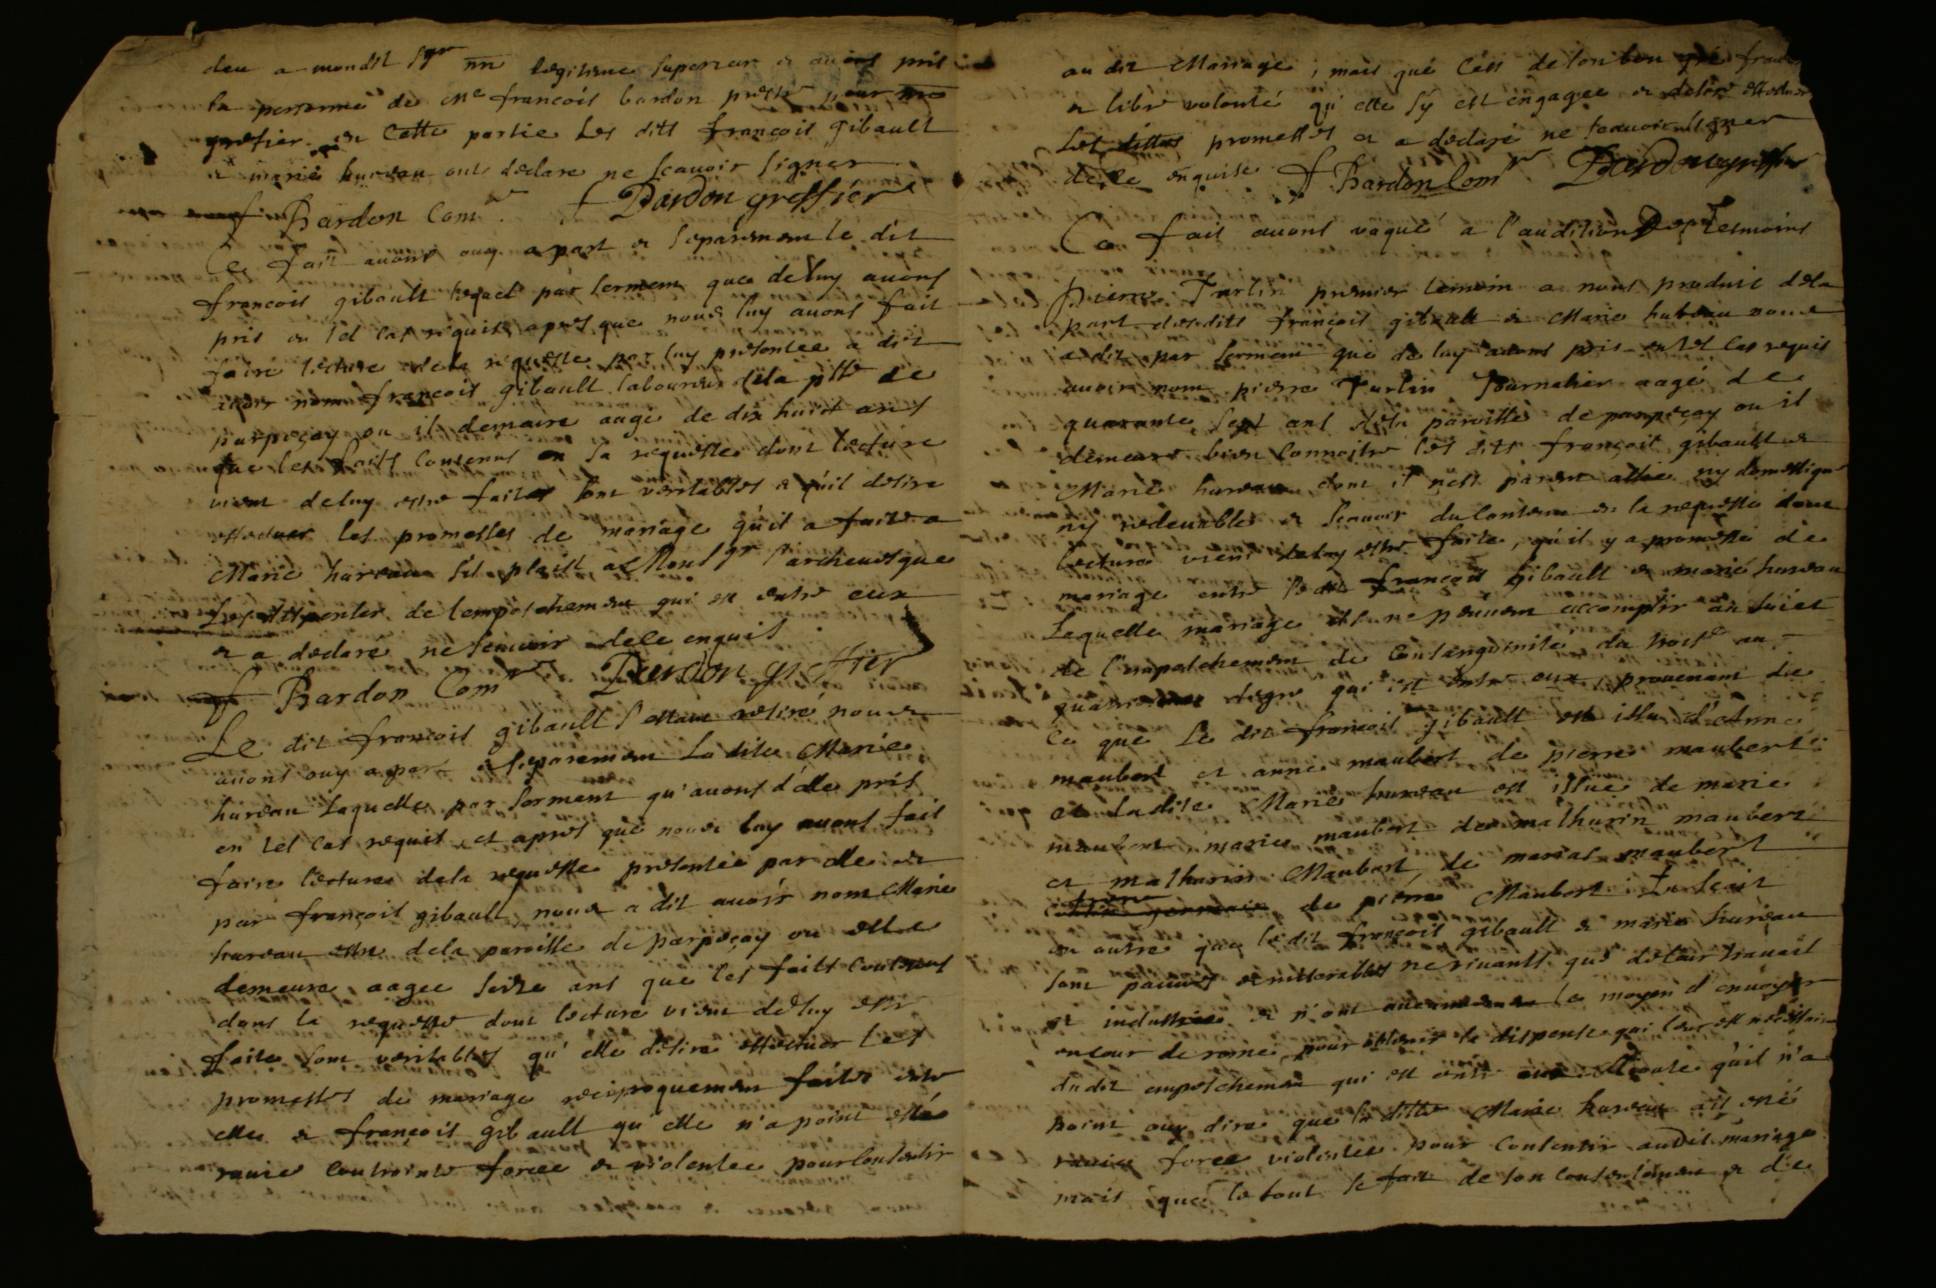 deu a mondt Sgr nn legitime superieur et avons pris
la personne de Me francois bardon prestre pour nre
grefier en cette partie Les dits francois gibault
et marie hureau ont declare ne scavoir signer
f Bardon Comre f Bardon greffier
Ce fait avons ouy a part et separement le dit
francois gibault lequel par serment que de luy avons
pris en tel cas requis apres que nous luy avons fait
faire lecture de la requeste par luy presentee a dit
avoir nom francois gibault laboureur de la psse de
parpeçay ou il demeure aagé de dix huict ans
que les faits contenus en sa requeste dont lecture
vient de luy estre faite sont veritables et qu'il desire
effectuer les promesses de mariage qu'il a faite a
Marie hureau s'il plaist a Monsgr l'archevesque
les dispenser de l'empeschement qui est entre eux
et a declaré ne scavoir de ce enquis
f Bardon Comre Bardon greffier
Le dit francois gibault s'estant retiré nous
avons ouy a part et separement la dite Marie
hureau laquelle par serment qu'avons d'elle pris
en tel cas requis et apres que nous luy avons fait
faire lecture de la requeste presentée par elle et
par françois gibault nous a dit avoir nom Marie
hureau estre de la paroisse de parpeçay ou elle
demeure, aagee seize ans que les faits contenus
dans la requeste dont lecture vient de luy estre
faite sont veritables qu'elle desire effectuer les
promesses de mariage reciproquement faites entre
elle et françois gibault qu'elle n'a point esté
ravie contrainte forcee et violentee pour consentir
au dit Mariage, mais que c'est de son bon gré franche
et libre volonté qu'elle s'y est engagee et desire effectuer
Les dittes promesses et a declaré ne scavoir signer
de ce enquise f Bardon Comre Bardon greffier
Ce fait avons vaqué a l'audition des tesmoins
Pierre Turlin premier temoin a nous produit de la
part desdits francois gibault et Marie hureau nous
a dit par serment que de luy avons pris en tel cas requis
avoir nom pierre Turlin Journalier aagé de
quarante sept ans de la paroisse de parpeçay ou il
demeure bien connoitre les dits françois gibault et
Marie hureau, dont il n'est parent allié ny domestique
ny redevable et scavoir du contenu en la requeste dont
lecture vient de luy estre faite, qu'il y a promesse de
mariage entre ledit françois gibault et marie hureau
Lequelle mariage ils ne peuvent accomplir au suiet
de l'empeschement de consanguinité du trois au
quatrieme degre qui est entre eux, provenant de
ce que Le dit francois gibault est issu d'Anne
maubert et anne maubert de pierre maubert
et Ladite Marie hureau est issue de marie
maubert marie maubert de mathurin maubert
et mathurin Maubert, de marias maubert
frere
cousin germain de pierre Maubert. Et sçait
en outre que ledit françois gibault et marie hureau
sont pauvres et miserables ne vivants que de leur travail
et industrie et n'ont aucunement le moyen d'envoyer
en cour de rome pour obtenir la dispense qui leur est necessaire
du dit empeschement qui est entre eux Adjoute qu'il n'a
point ouy dire que la ditte Marie hureau ait esté
ravie forcee violentee pour consentir audit mariage
mais que le tout se fait de son consentement et de